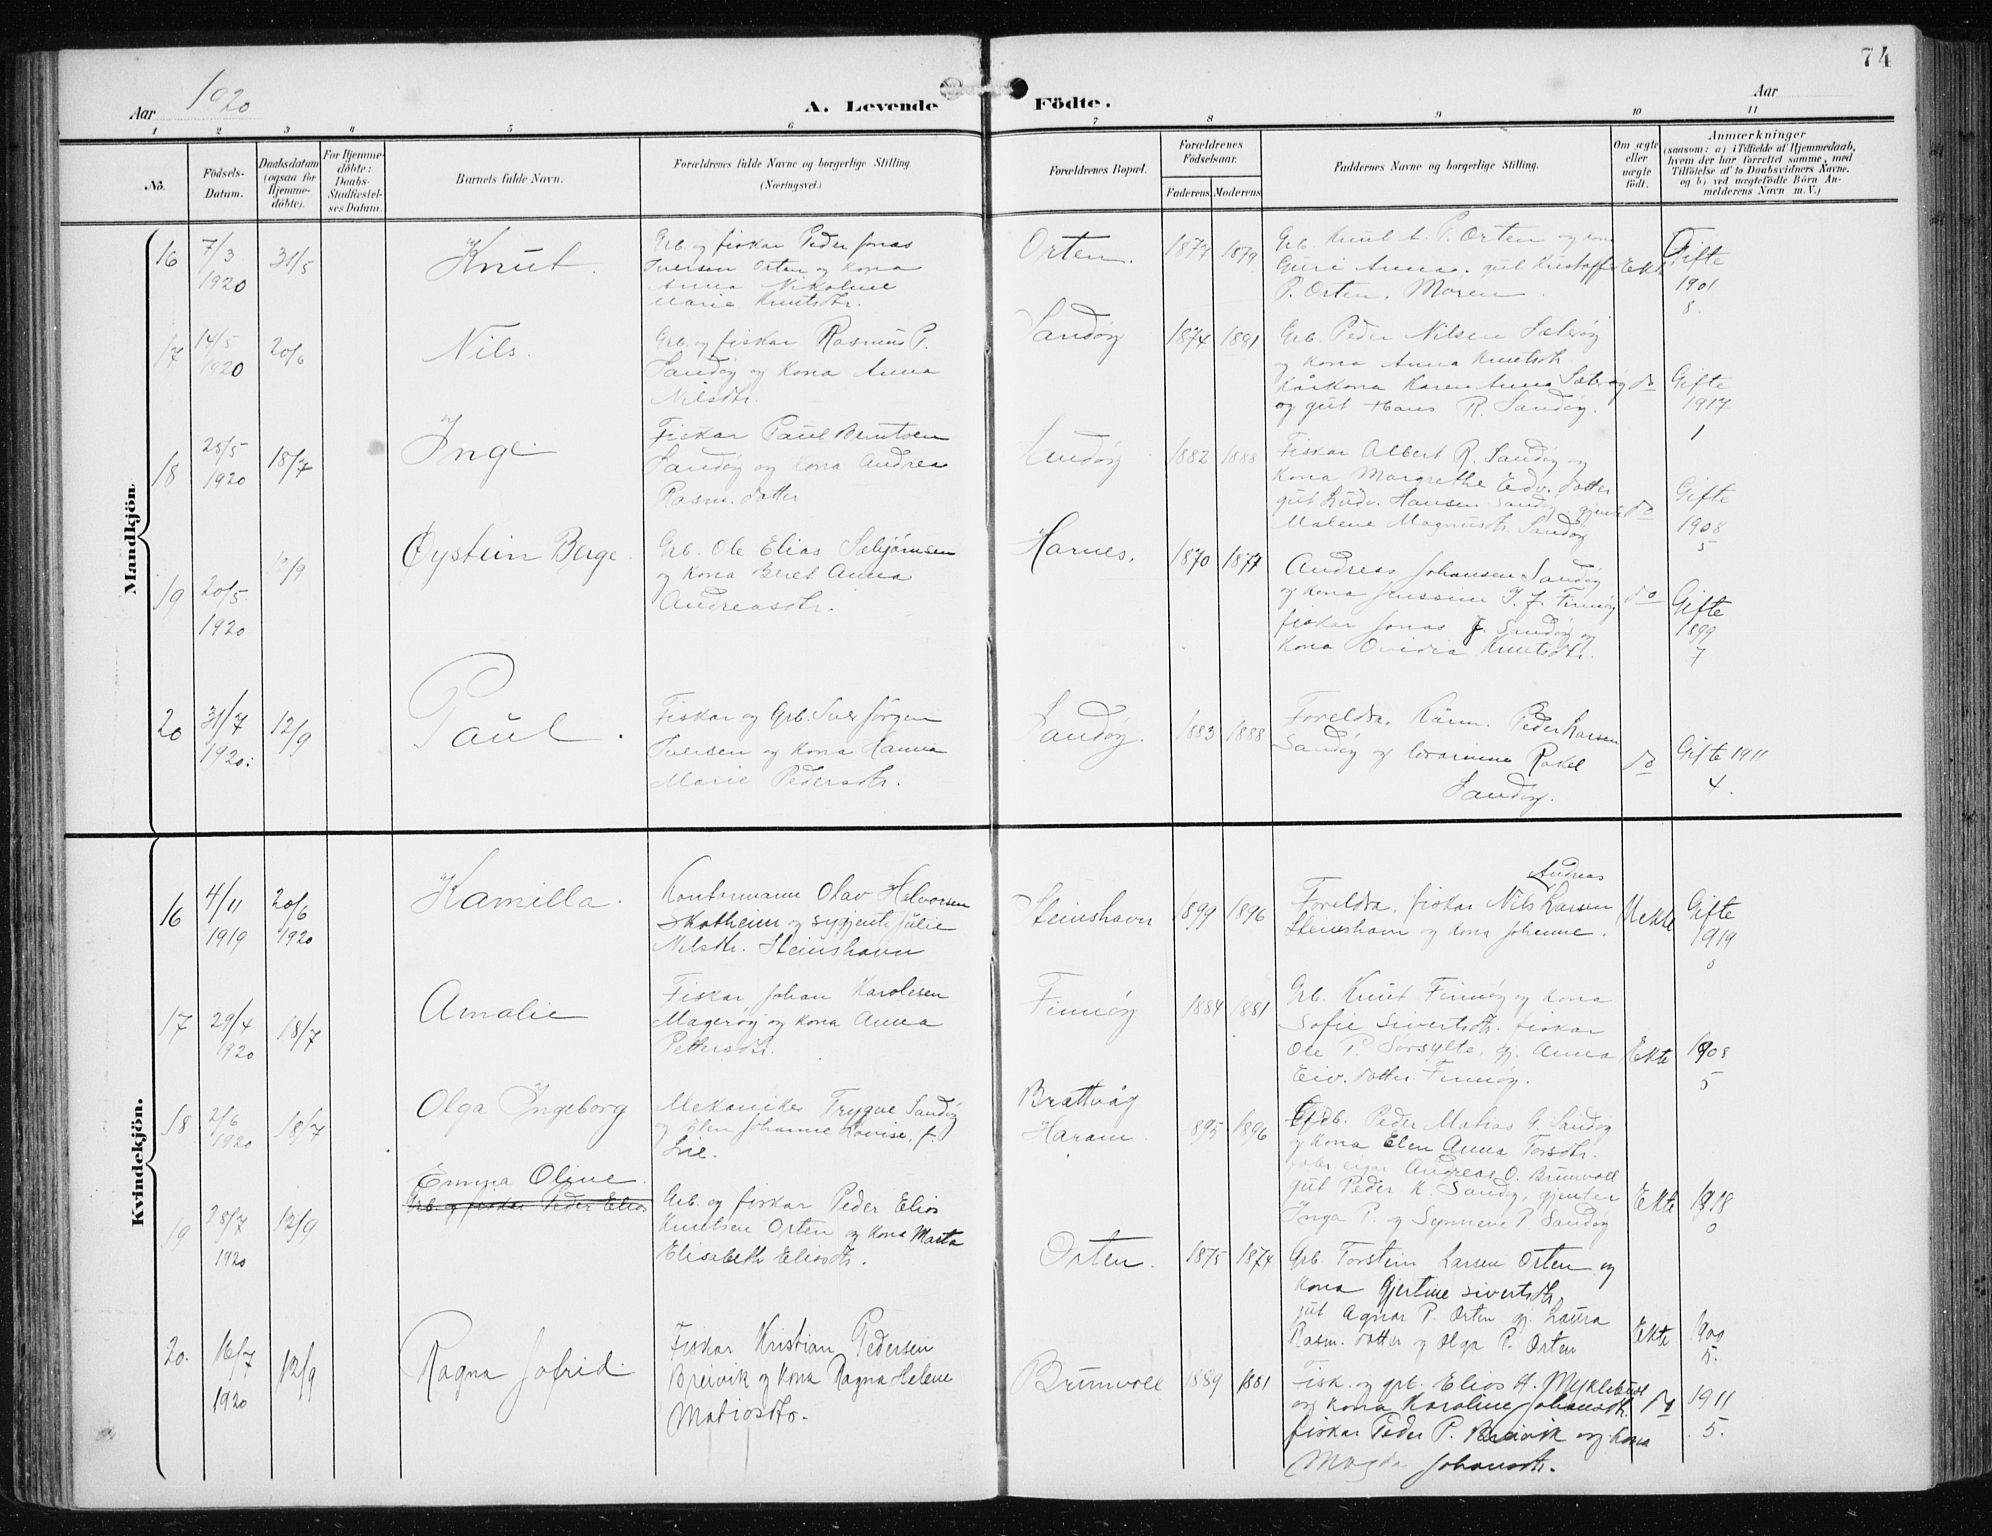 74
Aar 1920
A. Levende Födte.
Aar
1 2 3 4 5 6 7 8 9 10 11
No.
Födsels-Datum.
Daabsdatum (ogsaa for Hjemme-döbte).
For Hjemme-döbte: Daabs-Stadfæstel-ses Datum.
Barnets fulde Navn.
Forældrenes fulde Navne og borgerlige Stilling. (Næringsvei.)
Forældrenes Bopæl.
Forældrenes Födselsaar.
Faderens Moderens
Faddernes Navne og borgerlige Stilling.
Om ægte eller uægte födt.
Anmærkninger
(saasom: a) i Tilfælde af Hjemmedaab,
hvem der har forrettet samme, med
Tilföielse af to Daabsvidners Navne,
og b) ved uægtefödte Börn An-
melderens Navn m. V.)
Mandkjön.
16 7/3 1920 31/5 Knut.
Grb. og fiskar Peder Jonas
Iversen Orten og kona
Anna Nikoline
Marie Knutsdtr.
Orten. 1877 1879
Grb. Knut A. P. Orten og kona
Guri Anna, gut Kristoffer
P. Orten, Maren
Ekte
Gifte
1901
8.
17 14/5 1920 20/6 Nils.
Grb. og fiskar Rasmus P.
Sandøy og kona Anna
Nilsdtr.
Sandøy 1874 1891
Grb. Peder Nilsen Sæterøy
og kona Anna Knutsdtr.
Kårkona Karen Anna Sæterøy
og gut Hans R. Sandøy.
do
Gifte
1917
1
18 25/5 1920 18/7 Inge
Fiskar Paul Berntsen
Sandøy og kona Andrea
Rasm. datter
Sandøy 1882 1888
Fiskar Albert R. Sandøy og
kona Margrethe Edv. datter
gut Ludv. Hansen Sandøy, gjente
Malene Magnusdtr. Sandøy
do
Gifte
1908
5
19 20/5 1920 12/9 Øystein Berge.
Grb. Ole Elias Sæbjørnsen
og kona Beret Anna
Andreasdtr.
Harnes. 1870 1877
Andreas Johansen Sandøy
og kona Jensine P. J. Finnøy
fiskar Jonas J. Sandøy og
kona Ovidia Knutsdtr.
do
Gifte
1899
7
20 31/7 1920. 12/9 Paul.
Fiskar og Grb. Iver Jørgen
Iversen og kona Hanna
Marie Pedersdtr.
Sandøy. 1883 1888
Foreldra, Kårm. Peder Larsen
Sandøy og Rakel
Sandøy.
do
Gifte 1911
4.
Kvindekjön.
16 4/11 1919 20/6 1920 Kamilla.
Kontormann Olav Halvorsen
Skotheim og sygjente Julie
Nilsdtr. Steinshavn
Steinshavn 1899 1896
Andreas
Foreldra, fiskar Nils Larsen
Steinshavn og kona Johanne.
Uekte
Gifte
1919
0
17 29/4 1920 18/7 Amalie
Fiskar Johan Karolesen
Magerøy og kona Anna
Pettersdtr.
Finnøy 1884 1881
Grb. Knut Finnøy og kona
Sofie Sivertsdtr. fiskar
Ole P. Sorsylte, gj. Anna
Eiv. datter Finnøy.
Ekte
1908
5
18 2/6 1920 18/7 Olga Ingeborg
Mekaniker Trygve Sandøy
og Elen Johanne Lovise, f.
Lie.
Brattvåg
Haram. 1895 1896
Grb. Peder Matias G. Sandøy
og kona Elen Anna Torsdtr.
fabr. eigar Andreas O. Brunvoll
gut Peder K. Sandøy, gjenter
Inga P. og Synneve P. Sandøy
Ekte
1918
0
19 28/7 1920 12/9 Emma Oline.
Grb og fiskar Peder Elias
Grb. og fiskar Peder Elias
Knutsen Orten og kona Marta
Elisabeth Eliasdtr.
Orten. 1875 1874
Grb. Torstein Larsen Orten og
kona Gjertine Sivertsdtr.
gut Agnar P. Orten gj. Laura
Rasm. datter og Olga P. Orten
Ekte
1900
5.
20. 16/7 1920 12/9 Ragna Jofrid.
Fiskar Kristian Pedersen
Breivik og kona Ragna Helene
Matiasdtr.
Brunvoll 1889 1881
Fisk. og grb. Elias A. Myklebust
og kona Karoline Johansdtr.
fiskar Peder P. Breivik og kona
Magda Johansdtr.
do
1911
5.